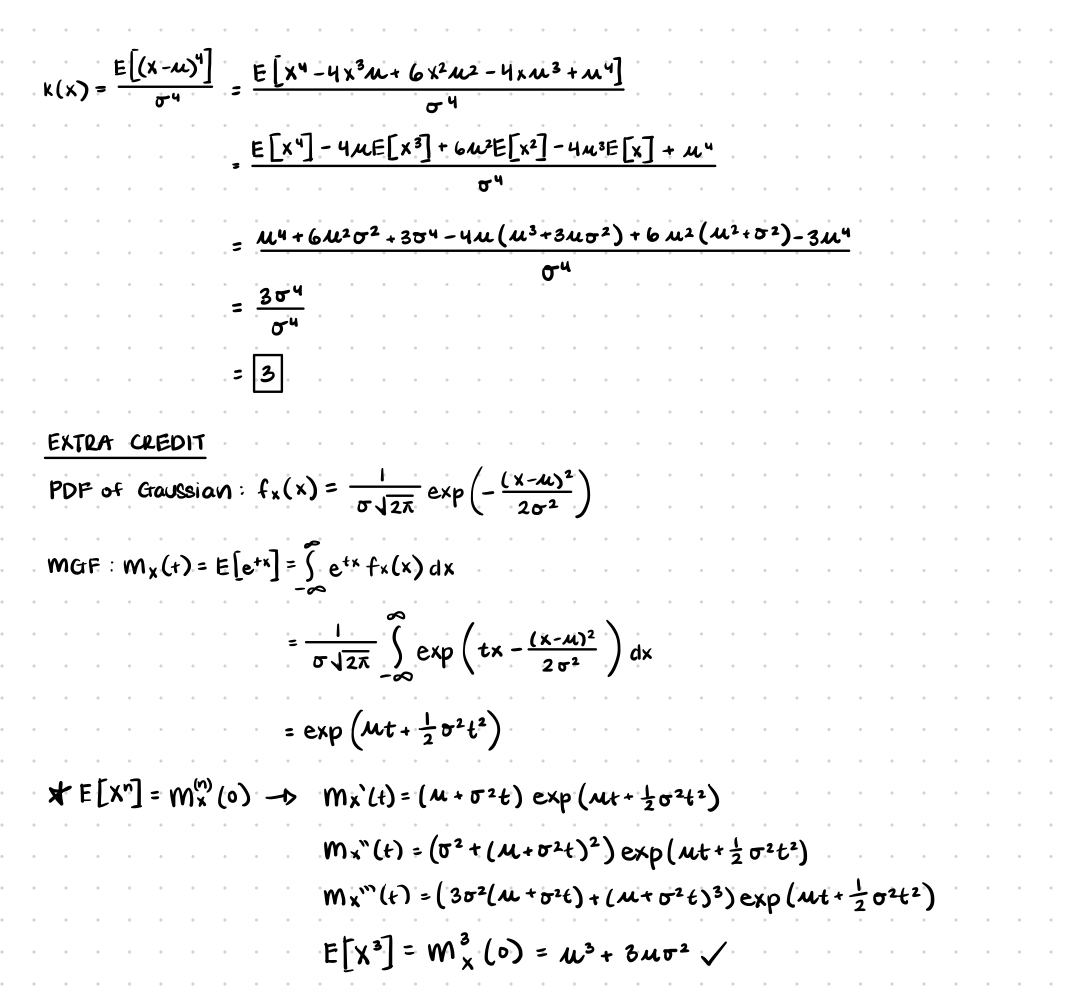 K(x) = E[(x-μ)⁴] / σ⁴ = E[x⁴ - 4x³μ + 6x²μ² - 4xμ³ + μ⁴] / σ⁴
= E[x⁴] - 4μE[x³] + 6μ²E[x²] - 4μ³E[x] + μ⁴ / σ⁴
= μ⁴ + 6μ²σ² + 3σ⁴ - 4μ(μ³ + 3μσ²) + 6μ²(μ² + σ²) - 3μ⁴ / σ⁴
= 3σ⁴ / σ⁴
= 3
EXTRA CREDIT
PDF of Gaussian : fₓ(x) = 1 / σ√2π exp(-(x-μ)² / 2σ²)
MGF : mₓ(t) = E[eᵗˣ] = ∫_{-∞}^{∞} eᵗˣ fₓ(x) dx
= 1 / σ√2π ∫_{-∞}^{∞} exp(tx - (x-μ)² / 2σ²) dx
= exp(μt + 1/2 σ²t²)
★ E[Xⁿ] = mₓ⁽ⁿ⁾(0) → mₓ'(t) = (μ + σ²t) exp(μt + 1/2 σ²t²)
mₓ''(t) = (σ² + (μ + σ²t)²) exp(μt + 1/2 σ²t²)
mₓ'''(t) = (3σ²(μ + σ²t) + (μ + σ²t)³) exp(μt + 1/2 σ²t²)
E[X³] = mₓ³(0) = μ³ + 3μσ² ✓